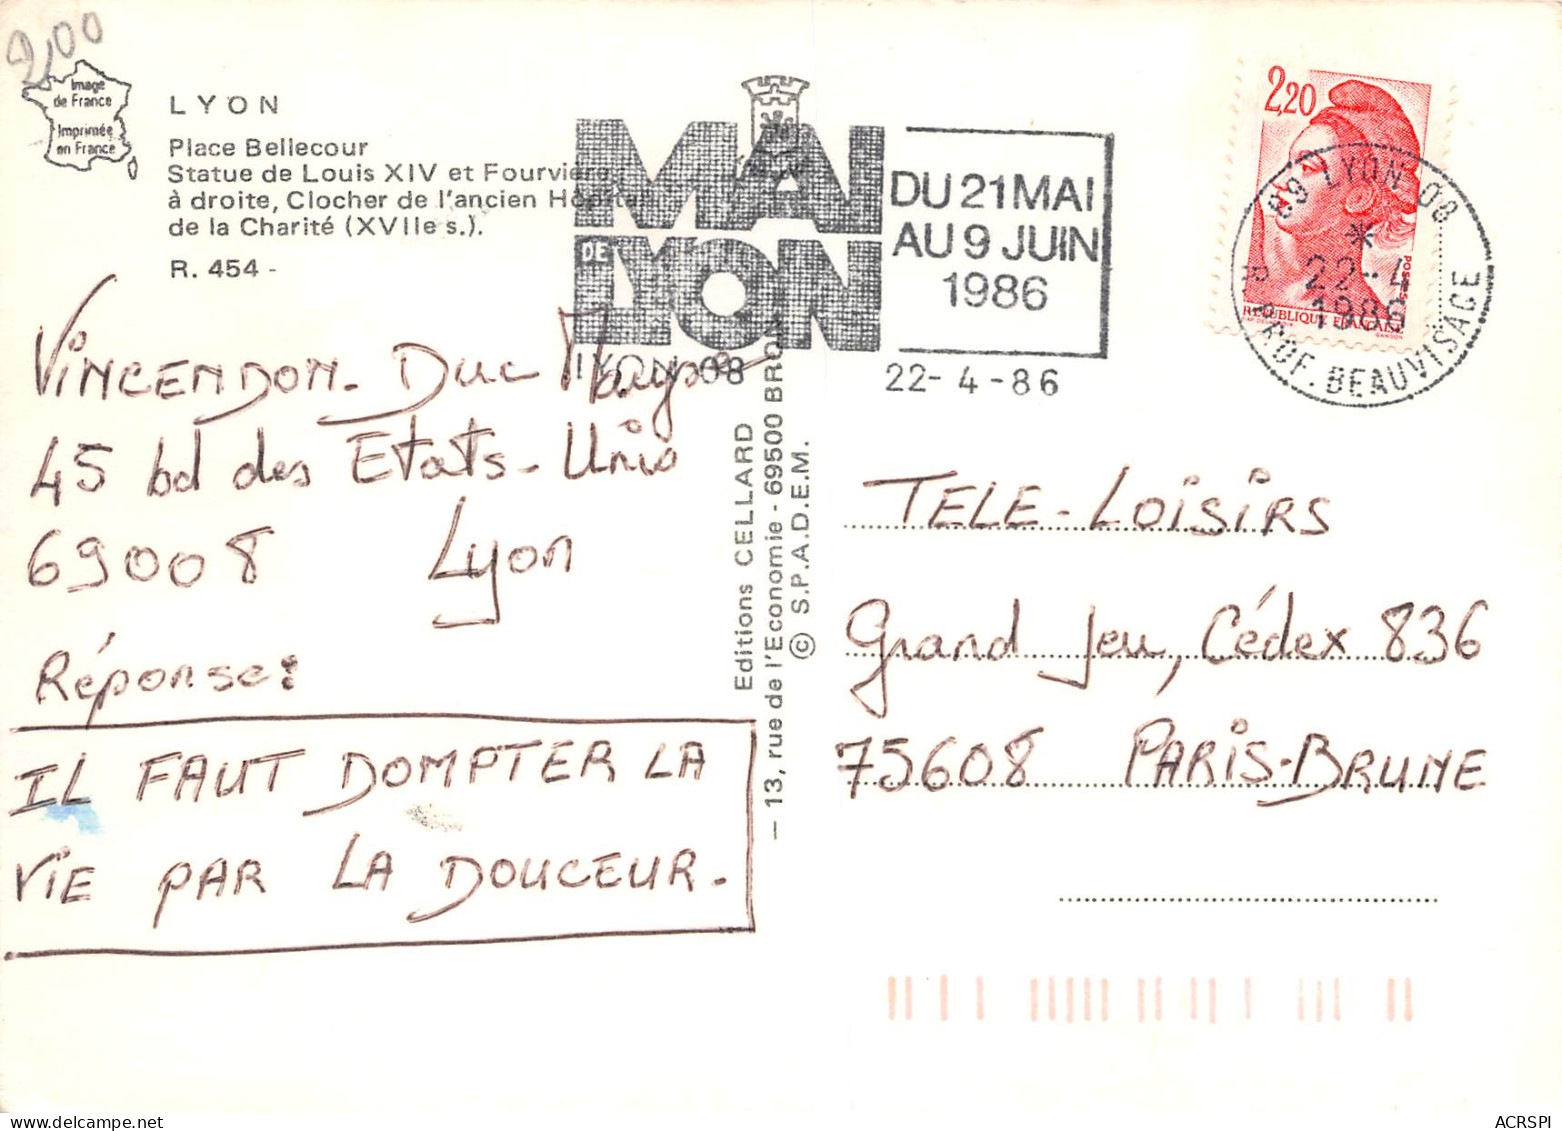 2,00
Image
de France
Imprimée
en France
LYON
Place Bellecour
Statue de Louis XIV et Fourvière
à droite, Clocher de l'ancien Hôpital
de la Charité (XVIIe s.).
R. 454 -
MAI
DE
LYON
DU 21 MAI
AU 9 JUIN
1986
LYON 08
22-4-86
2,20
POSTES
REPUBLIQUE FRANÇAISE
GANDON
69 LYON 08
*
22-4
1986
R. PROF. BEAUVISAGE
VINCENDON. Duc
45 bd des Etats-Unis
69008 Lyon
Réponse:
IL FAUT DOMPTER LA
VIE PAR LA DOUCEUR.
Editions CELLARD
— 13, rue de l'Economie - 69500 BRON
© S.P.A.D.E.M.
TELE-LOISIRS
Grand Jeu, Cédex 836
75608 PARIS-BRUNE
ACRSPI